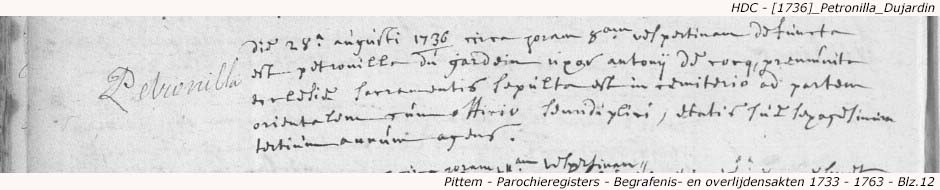 HDC - [1736]_Petronilla_Dujardin
Petronilla
Die 28ª augusti 1736 circa horam 8am vespertinam defuncta
est petronilla du gardein uxor antonij de cocq, premunita
ecclesiæ sacramentis sepulta est in cemiterio ad partem
orientalem cum officio semidiplici, etatis suæ sexagesimum
tertium annum agens.
horam vespertinam
Pittem - Parochieregisters - Begrafenis- en overlijdensakten 1733 - 1763 - Blz.12